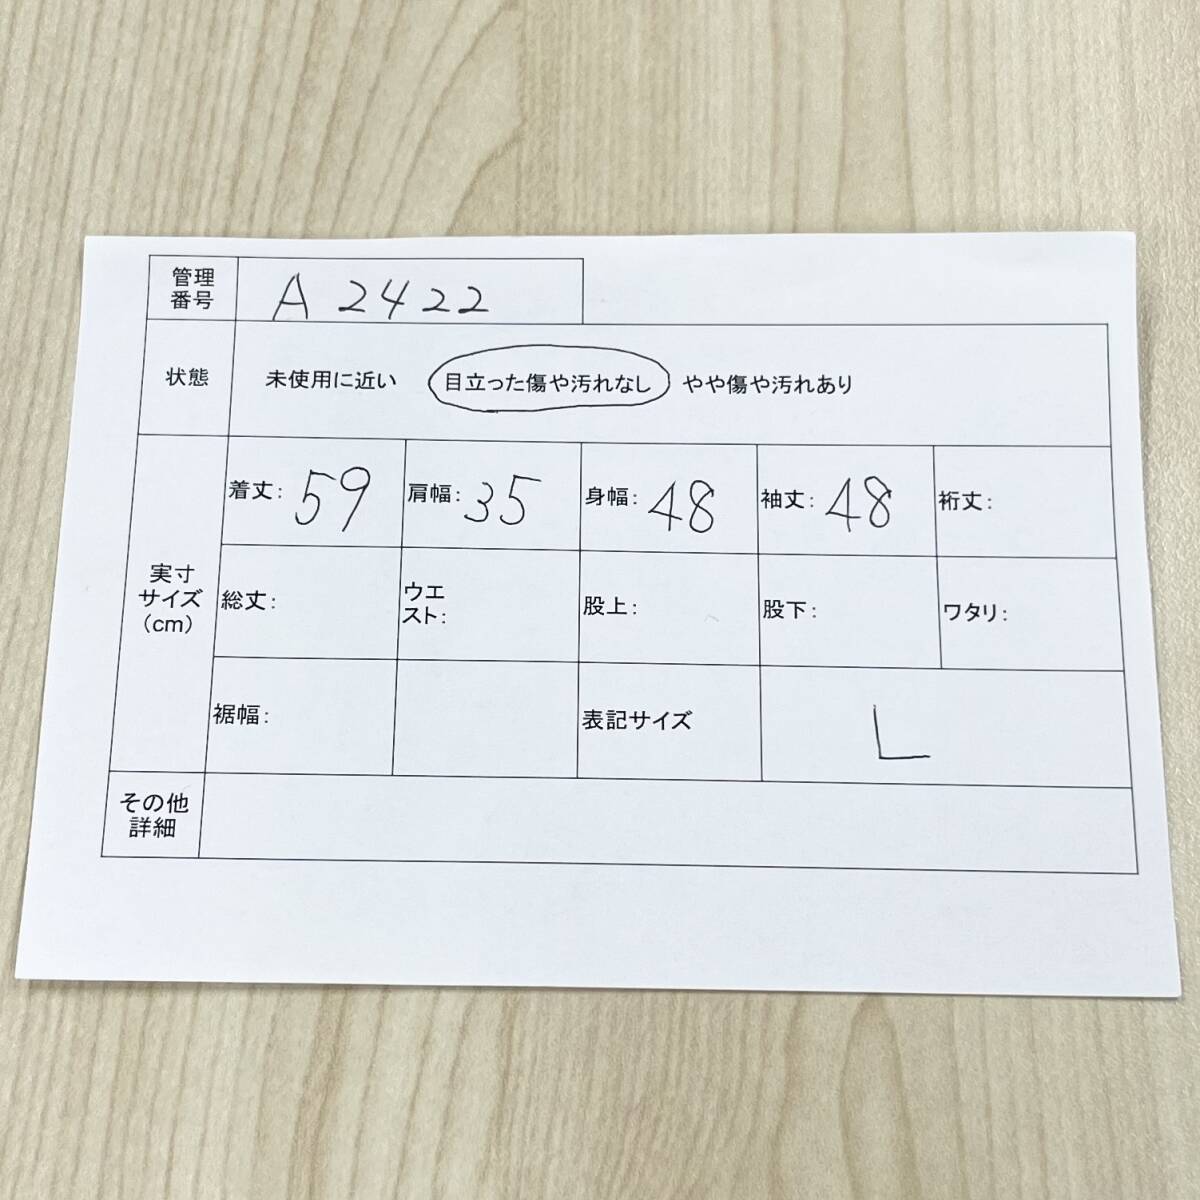 管理
番号
A 2422
状態
未使用に近い 目立った傷や汚れなし やや傷や汚れあり
実寸
サイズ
（cm）
着丈： 59
肩幅： 35
身幅： 48
袖丈： 48
裄丈：
総丈：
ウエ
スト：
股上：
股下：
ワタリ：
裾幅：
表記サイズ
L
その他
詳細